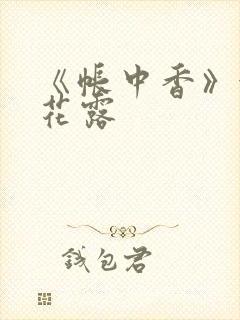 《帐中香》
花露
钱包君